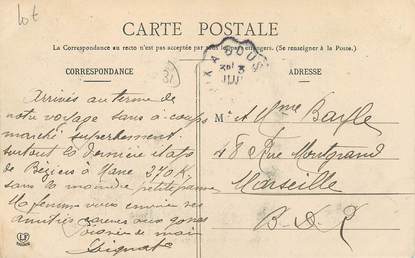 lot
CARTE POSTALE
La Correspondance au recto n'est pas acceptée par tous les pays étrangers. (Se renseigner à la Poste.)
CORRESPONDANCE
ADRESSE
31
Arrivés au terme de
notre voyage sans à-coups
marché superbement
surtout la dernière étape
de Béziers à 370 K.
sans la moindre petite panne
Ma femme vous envoie ses
amitiés
Poignée de main
M. et Mme Bayle
48 Rue Montgrand
Marseille
B. D. R